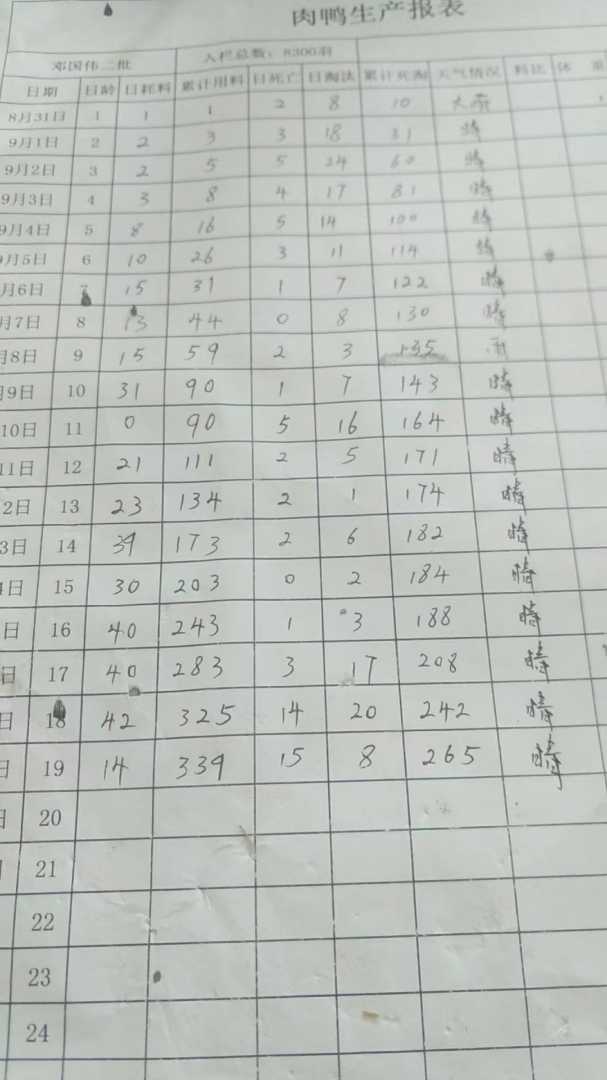 肉鸭生产报表
邓国伟二批 入栏总数：8300羽
日期 日龄 日耗料 累计用料 日死亡 日淘汰 累计死淘 天气情况 料比 体 重
8月31日 1 1 1 2 8 10 大雨
9月1日 2 2 3 3 18 31 晴
9月2日 3 2 5 5 24 60 晴
9月3日 4 3 8 4 17 81 晴
9月4日 5 8 16 5 14 100 晴
9月5日 6 10 26 3 11 114 晴
月6日 7 15 31 1 7 122 晴
月7日 8 13 44 0 8 130 晴
月8日 9 15 59 2 3 135 雨
月9日 10 31 90 1 7 143 晴
10日 11 0 90 5 16 164 晴
11日 12 21 111 2 5 171 晴
2日 13 23 134 2 1 174 晴
3日 14 39 173 2 6 182 晴
4日 15 30 203 0 2 184 晴
日 16 40 243 1 3 188 晴
日 17 40 283 3 17 208 晴
日 18 42 325 14 20 242 晴
日 19 14 339 15 8 265 晴
日 20
21
22
23
24